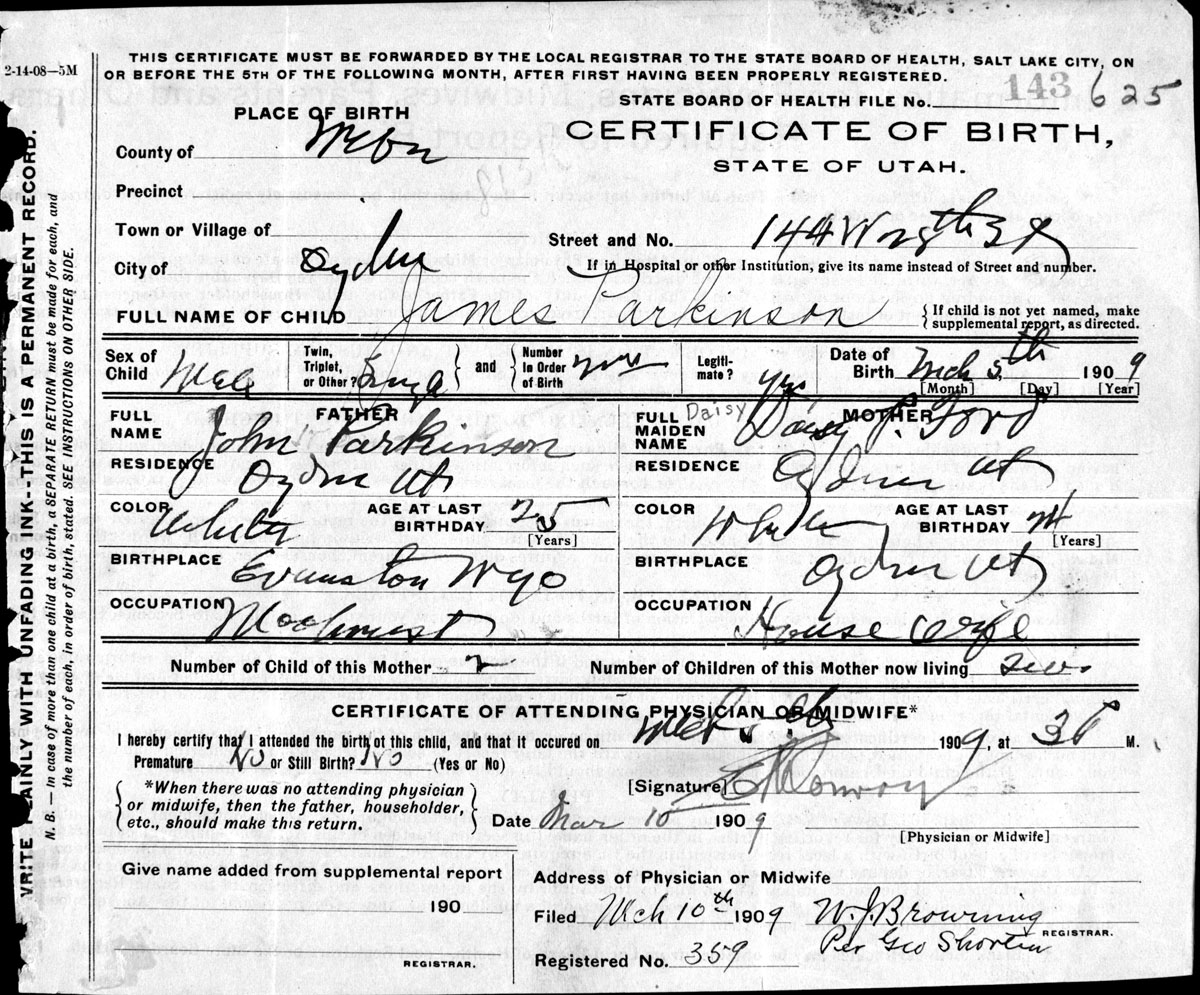 2-14-08—5M
THIS CERTIFICATE MUST BE FORWARDED BY THE LOCAL REGISTRAR TO THE STATE BOARD OF HEALTH, SALT LAKE CITY, ON
OR BEFORE THE 5TH OF THE FOLLOWING MONTH, AFTER FIRST HAVING BEEN PROPERLY REGISTERED.
STATE BOARD OF HEALTH FILE No. 143 625
PLACE OF BIRTH
CERTIFICATE OF BIRTH,
STATE OF UTAH.
County of
Precinct
Town or Village of
Street and No. 144 St
City of Ogden
If in Hospital or other Institution, give its name instead of Street and number.
FULL NAME OF CHILD James Parkinson
{ If child is not yet named, make
supplemental report, as directed.
Sex of Child Male
Twin, Triplet, or Other? Single
and
Number In Order of Birth
Legiti-mate? Yes
Date of Birth Mch 5th 1909
[Month] [Day] [Year]
FATHER
FULL NAME John Parkinson
RESIDENCE Ogden Ut
COLOR White
AGE AT LAST BIRTHDAY 25
[Years]
BIRTHPLACE Evanston Wyo
OCCUPATION Machinist
MOTHER
FULL MAIDEN NAME Daisy Daisy P. Ford
RESIDENCE Ogden Ut
COLOR White
AGE AT LAST BIRTHDAY 24
[Years]
BIRTHPLACE Ogden Ut
OCCUPATION House wife
Number of Child of this Mother 2
Number of Children of this Mother now living two
CERTIFICATE OF ATTENDING PHYSICIAN OR MIDWIFE*
I hereby certify that I attended the birth of this child, and that it occured on Mch 5 1909, at 3 P M.
Premature No or Still Birth? No (Yes or No)
{ *When there was no attending physician
or midwife, then the father, householder,
etc., should make this return. }
[Signature] Conroy
Date Mar 10 1909
[Physician or Midwife]
Give name added from supplemental report
190
REGISTRAR.
Address of Physician or Midwife
Filed Mch 10th 1909 W. J. Browning
REGISTRAR.
Per Geo Shorten
Registered No. 359
WRITE PLAINLY WITH UNFADING INK-THIS IS A PERMANENT RECORD.
N. B. — In case of more than one child at a birth, a SEPARATE RETURN must be made for each, and
the number of each, in order of birth, stated. SEE INSTRUCTIONS ON OTHER SIDE.